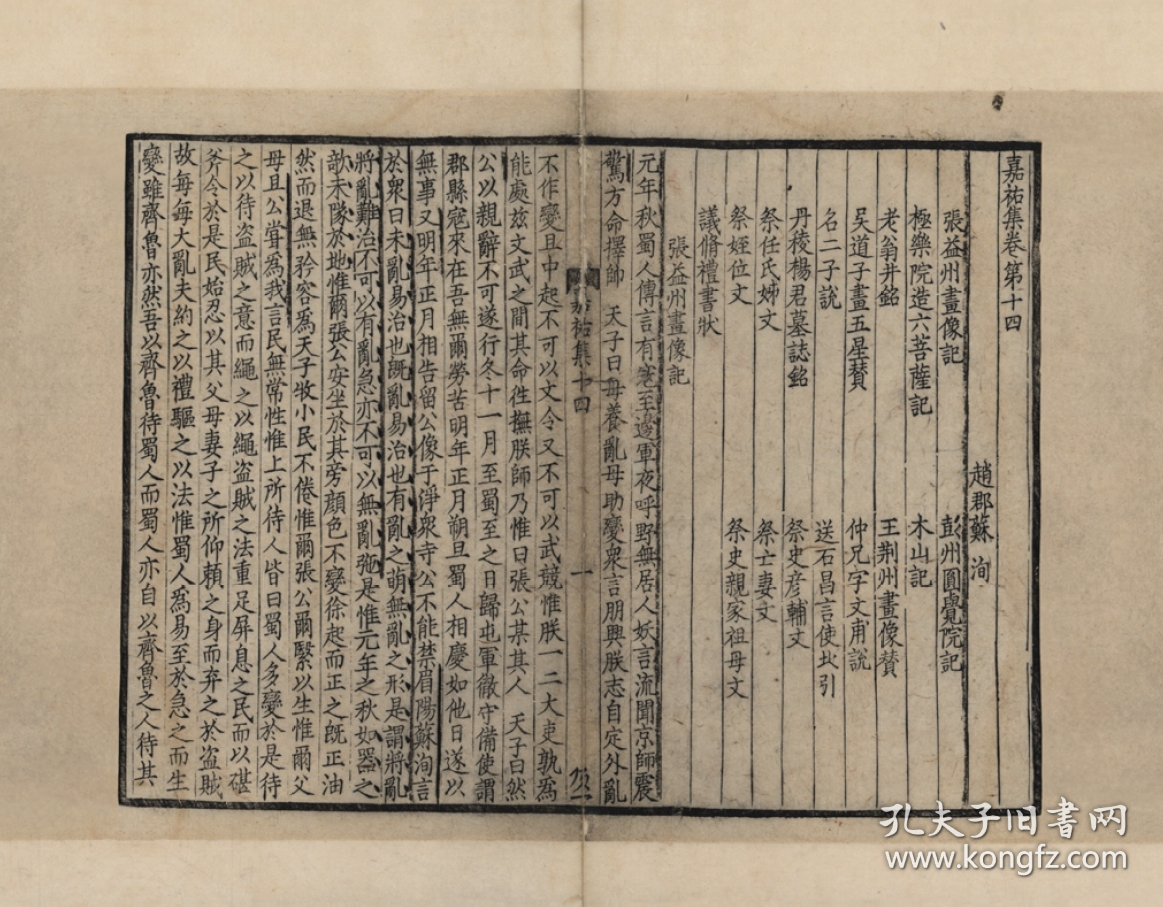 嘉祐集卷第十四
趙郡蘇 洵
張益州畫像記 彭州圓覺院記
極樂院造六菩薩記 木山記
老翁井銘 王荆州畫像贊
吳道子畫五星贊 仲兄字文甫說
名二子說 送石昌言使北引
丹稜楊君墓誌銘 祭史彦輔文
祭任氏姊文 祭亡妻文
祭姪位文 祭史親家祖母文
議脩禮書狀
張益州畫像記
元年秋蜀人傳言有寇至邊軍夜呼野無居人妖言流聞京師震
驚方命擇帥 天子曰毋養亂毋助變衆言朋興朕志自定外亂
嘉祐集十四 一
不作變且中起不可以文令又不可以武競惟朕一二大吏孰爲
能處兹文武之間其命往撫朕師乃惟曰張公其其人 天子曰然
公以親辭不可遂行冬十一月至蜀至之日歸屯軍徹守備使謂
郡縣寇來在吾無爾勞苦明年正月朔旦蜀人相慶如他日遂以
無事又明年正月相告留公像于淨衆寺公不能禁眉陽蘇洵言
於衆曰未亂易治也旣亂易治也有亂之萌無亂之形是謂將亂
將亂難治不可以有亂急亦不可以無亂弛是惟元年之秋如器之
欹未隊於地惟爾張公安坐於其旁顔色不變徐起而正之旣正油
然而退無矜容爲天子牧小民不倦惟爾張公爾繄以生惟爾父
母且公甞爲我言民無常性惟上所待人皆曰蜀人多變於是待
之以待盗賊之意而繩之以繩盗賊之法重足屏息之民而以碪
斧令於是民始忍以其父母妻子之所仰賴之身而弃之於盗賊
故每每大亂夫約之以禮驅之以法惟蜀人爲易至於急之而生
變雖齊魯亦然吾以齊魯待蜀人而蜀人亦自以齊魯之人待其
孔夫子旧书网
www.kongfz.com